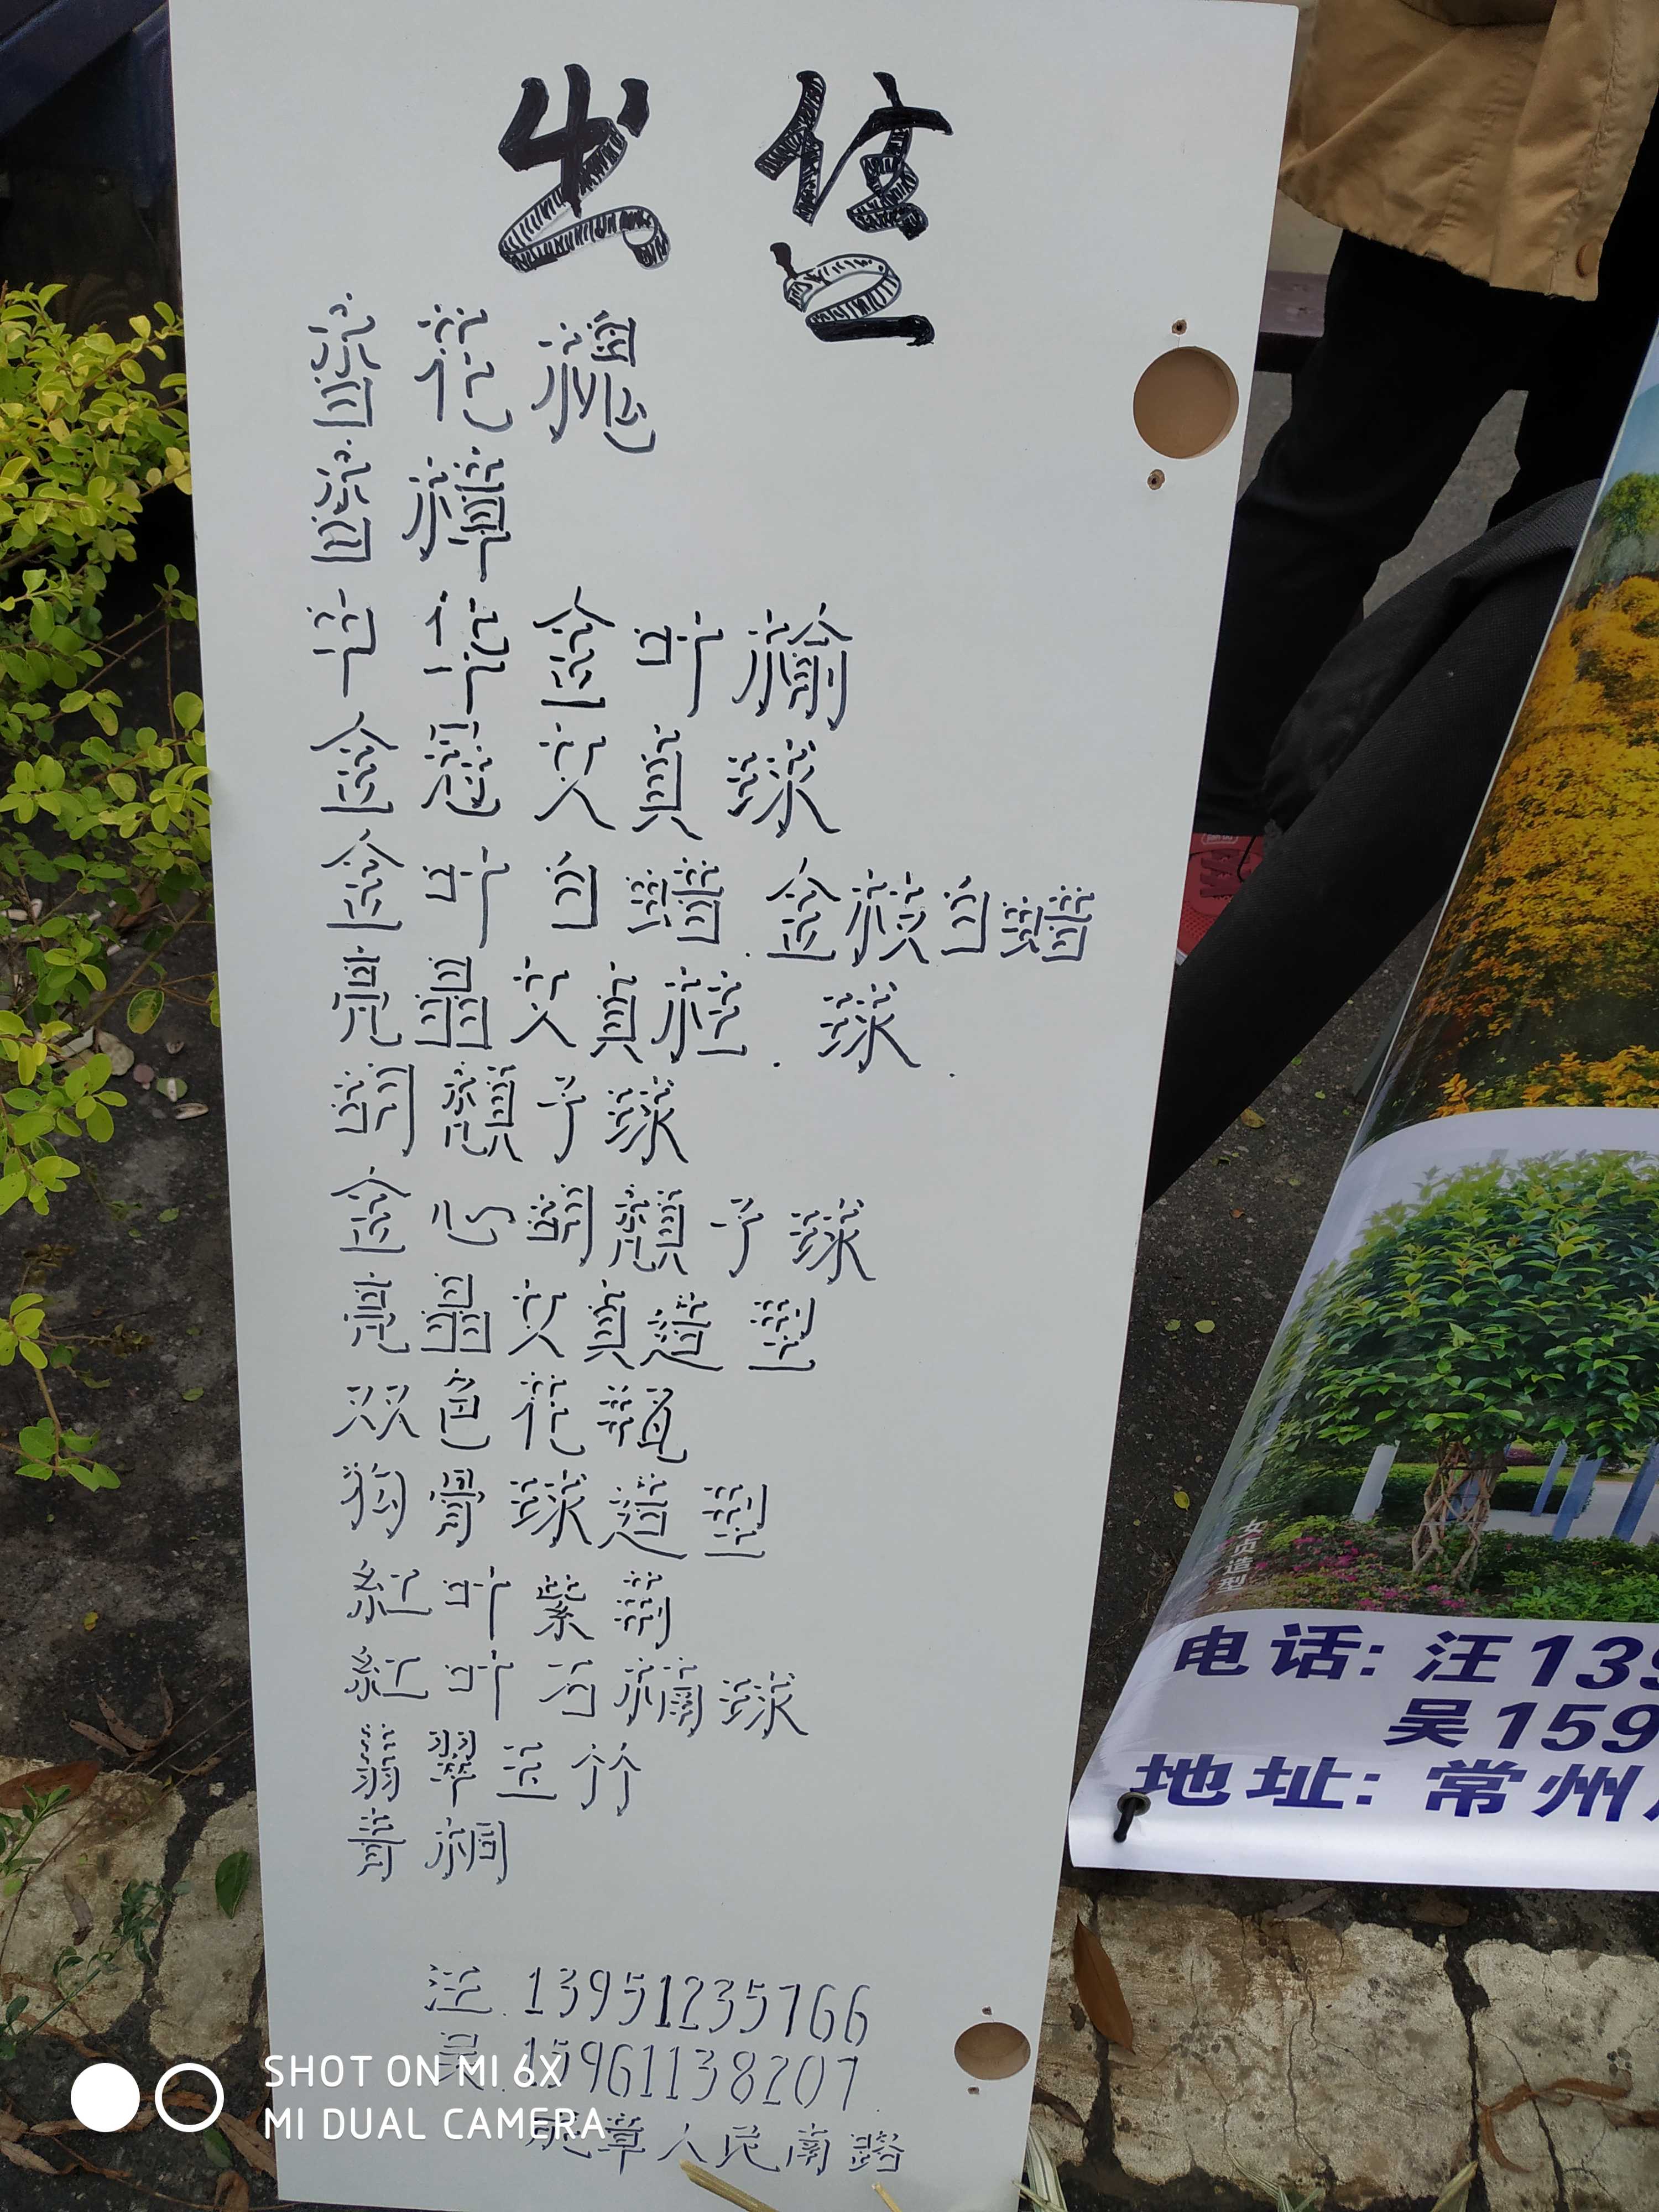 出售
香花槐
香樟
中华金叶榆
金女贞球
金叶白蜡.金枝白蜡
亮晶女贞桩.球.
胡颓子球
金心胡颓子球
亮晶女贞造型
双色花瓶
狗骨球造型
红叶紫荆
红叶石楠球
竹
汪.13951235766
吴.15961138207.
人民南路
女贞造型
电话: 汪139
吴159
地址: 常州
SHOT ON MI 6X
MI DUAL CAMERA